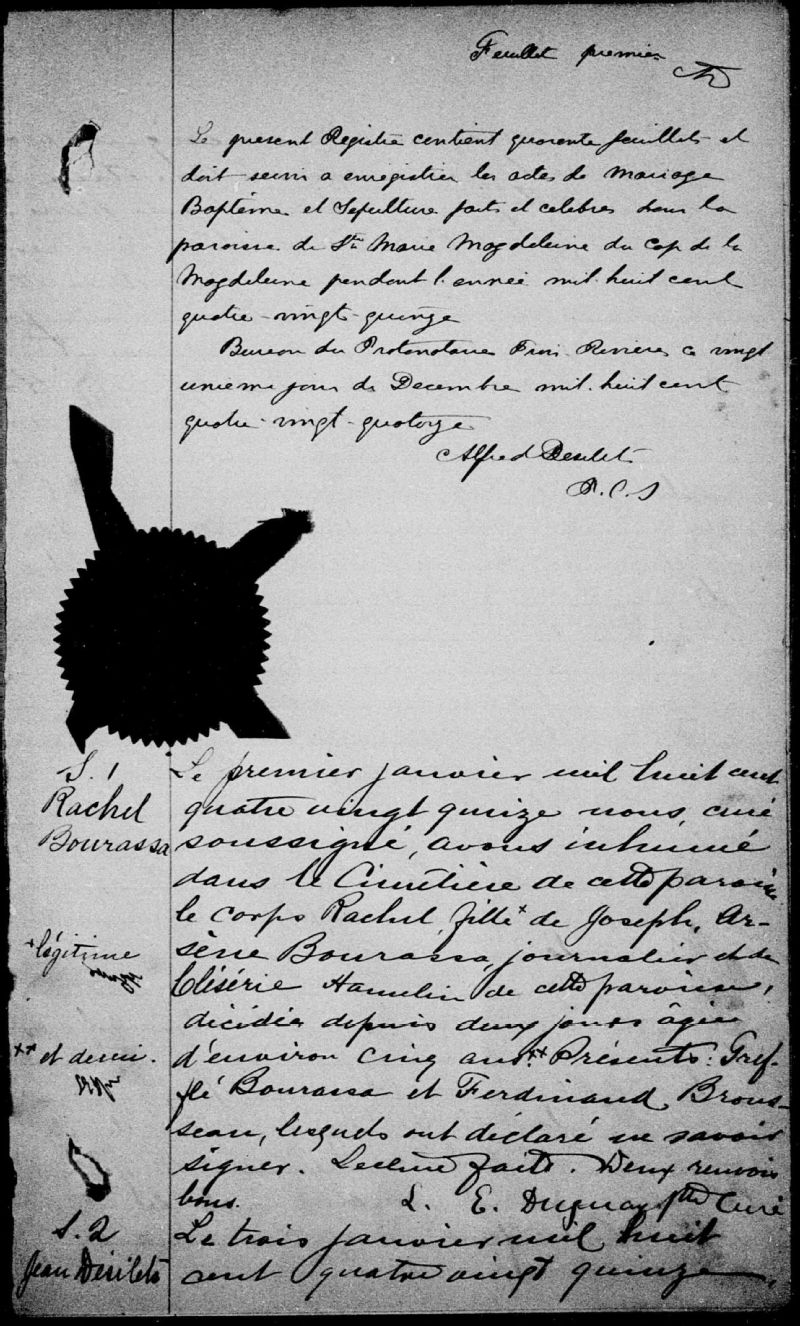 Feuillet premier
AD
Le present Registre contient quarante feuillets et
doit servir a enregistrer les actes de Mariage
Baptême et Sepulture faits et celebres dans la
paroisse de Ste Marie Magdeleine du Cap de la
Magdeleine pendant l'année mil huit cent
quatre-vingt-quinze
Bureau du Protonotaire Trois Rivieres ce vingt
unieme jour de Decembre mil huit cent
quatre-vingt-quatorze
Alfred Desilets
P.C.S
S. 1
Rachel
Bourassa
Le premier janvier mil huit cent
quatre vingt quinze nous, curé
soussigné, avons inhumé
dans le Cimetière de cette paroisse
le corps Rachel, fille+ de Joseph, Ar-
sène Bourassa, journalier et de
Elisérie Hamelin de cette paroisse,
décédée depuis deux jours âgée
d'environ cinq ans++. Présents: Tref-
flé Bourassa et Ferdinand Brous-
seau, lesquels ont déclaré ne savoir
signer. Lecture faite. Deux renvois
bons. L. E. Duguay Ptre Curé
+légitime
++ et demi.
S. 2
Jean Désilets
Le trois janvier mil huit
cent quatre vingt quinze,